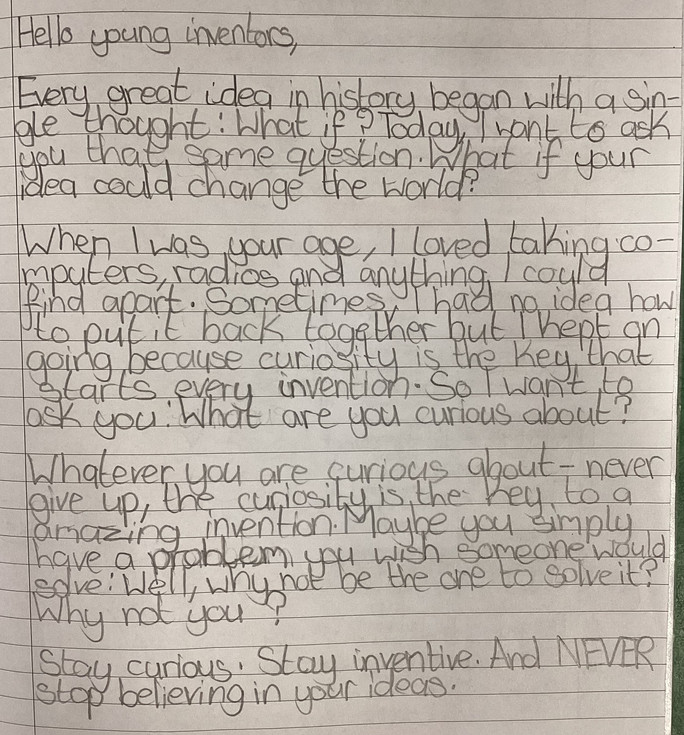 Hello young inventors,
Every great idea in history began with a sin-
gle thought: What if? Today, I want to ask
you that same question. What if your
idea could change the world?
When I was your age, I loved taking co-
mputers, radios and anything I could
find apart. Sometimes, I had no idea how
to put it back together but I kept on
going because curiosity is the key that
starts every invention. So I want to
ask you: What are you curious about?
Whatever you are curious about - never
give up, the curiosity is the key to a
amazing invention. Maybe you simply
have a problem you wish someone would
solve: Well, why not be the one to solve it?
Why not you?
Stay curious. Stay inventive. And NEVER
stop believing in your ideas.